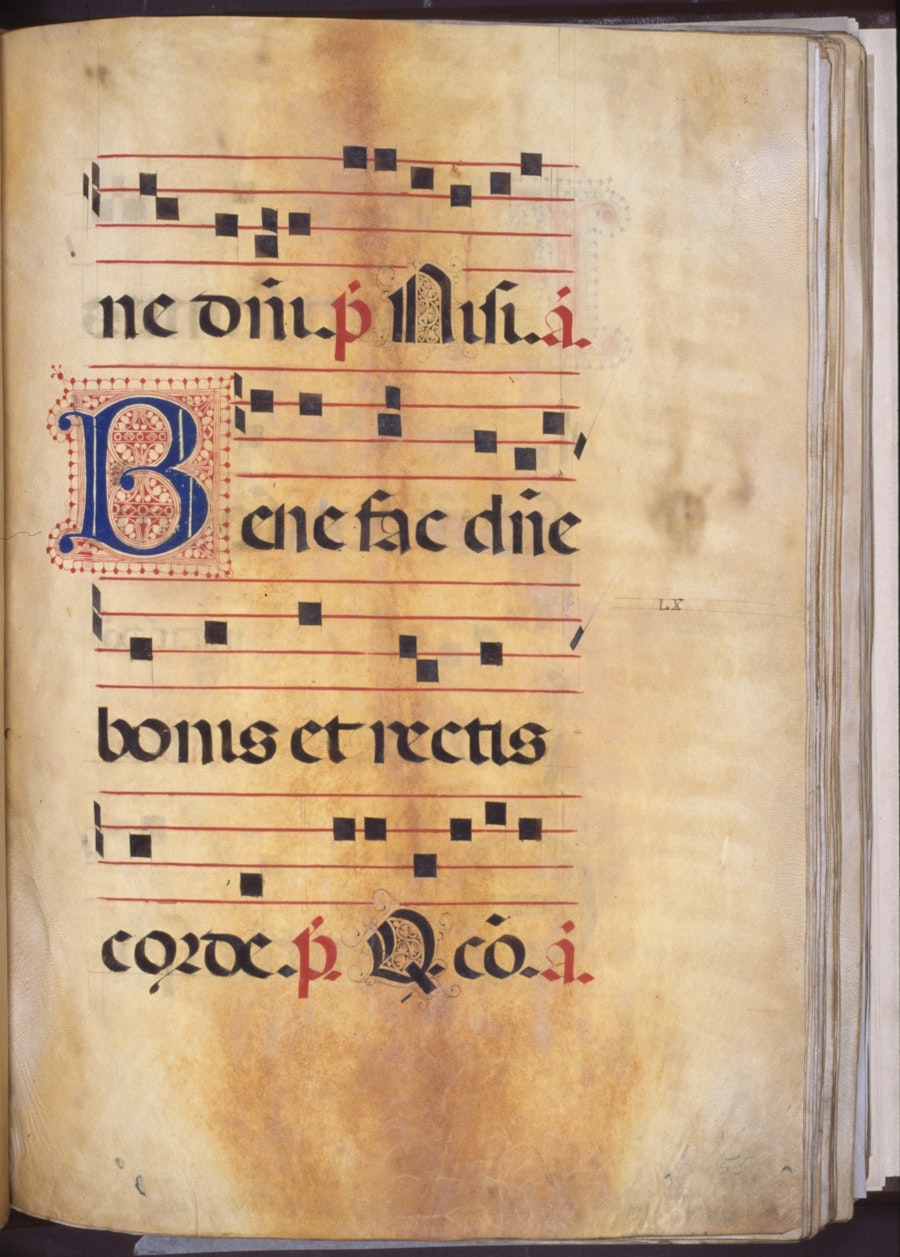 ne dñi. p̃ Nisi. ã.
Bene fac dñe
LX
bonis et rectis
corde. p̃. Q. cõ. ã.